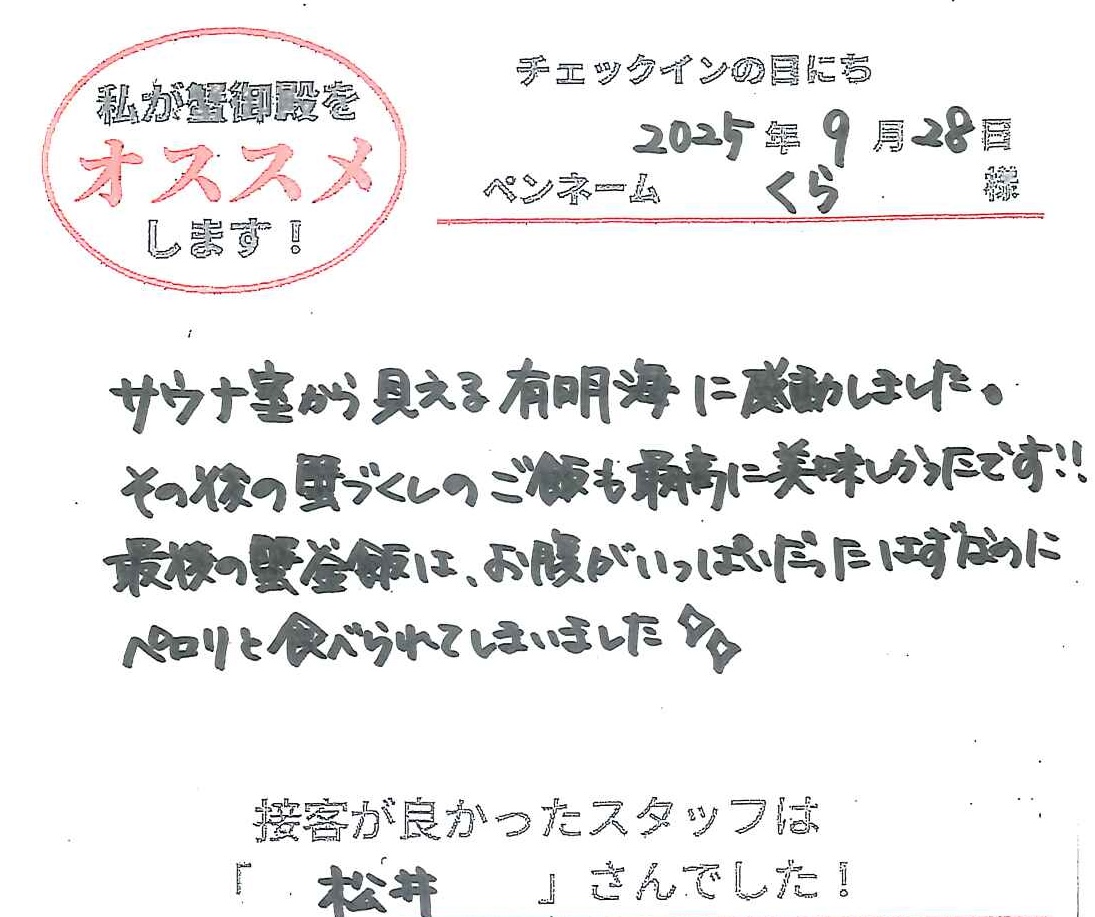 私が蟹御殿を
オススメ
します！
チェックインの日にち
2025年9月28日
ペンネーム くら 様
サウナ室から見える有明海に感動しました。
その後の蟹づくしのご飯も最高に美味しかったです!!
最後の蟹釜飯は、お腹がいっぱいだったはずなのに
ペロリと食べられてしまいました
接客が良かったスタッフは
「 松井 」さんでした！